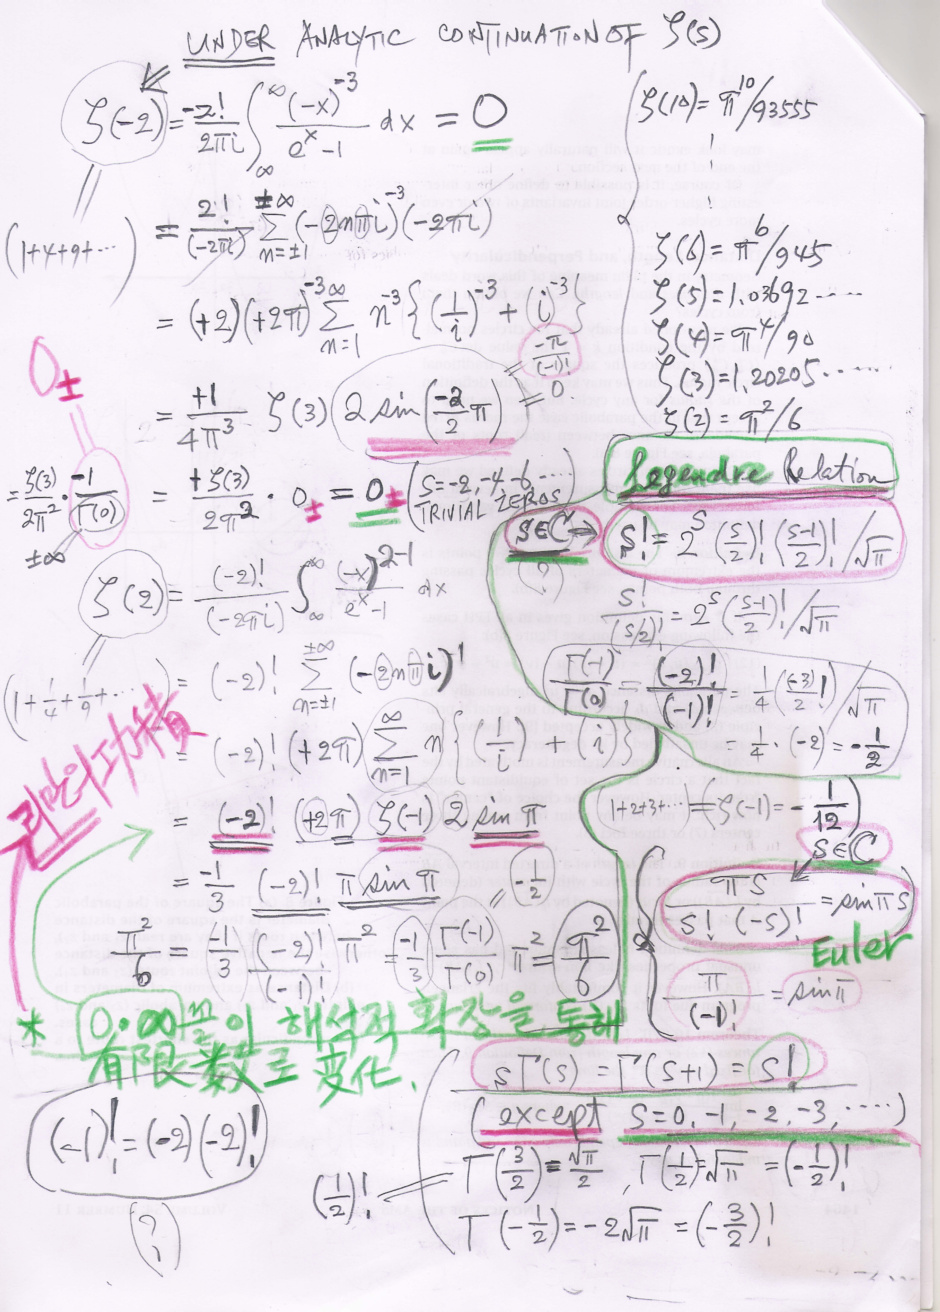 UNDER ANALYTIC CONTINUATION OF ζ(s)
ζ(-2) = -2!/2πi ∫_∞^∞ (-x)^-3/(e^x - 1) dx = 0
(1+4+9+···)
= 2!/(-2πi) Σ_{n=±1}^{±∞} (-2nπi)^-3 (-2πi)
= (+2)(+2π)^-3 Σ_{n=1}^∞ n^-3 {(1/i)^-3 + i^-3}
-π/(-1)!
0
0±
= +1/4π³ ζ(3) (2 sin (-2/2 π))
= ζ(3)/2π² · -1/Γ(0) = +ζ(3)/2π² · 0± = 0± (S=-2, -4, -6, ···
TRIVIAL ZEROS)
±∞
ζ(2) = (-2)!/(-2πi) ∫_∞^∞ (-x)^2-1/(e^x - 1) dx
(1 + 1/4 + 1/9 + ···)
= (-2)! Σ_{n=±1}^{±∞} (-2nπi)^1
= (-2)! (+2π) Σ_{n=1}^∞ n {(1/i) + i}
리만의 功績
= (-2)! (+2π) ζ(-1) 2 sin π
= -1/3 (-2)! π sin π
-1/2
π²/6 = -1/3 (-2)!/(-1)! π² = -1/3 Γ(-1)/Γ(0) π² = π²/6
* 0·∞이 해석적 확장을 통해
有限數로 変化.
(-1)! = (-2)(-2)!
?
ζ(10) = π^10/93555
ζ(6) = π^6/945
ζ(5) = 1.03692 ·····
ζ(4) = π^4/90
ζ(3) = 1.20205 ·····
ζ(2) = π²/6
Legendre Relation
S∈C → S! = 2^S (S/2)! (S-1/2)! / √π
?
S!/(S/2)! = 2^S (S-1/2)! / √π
Γ(-1)/Γ(0) = (-2)!/(-1)! = 1/4 (-3/2)! / √π
= 1/4 · (-2) = -1/2
1+2+3+··· = ζ(-1) = -1/12
S∈C
πS/(S! (-S)!) = sin πS
Euler
π/(-1)! = sin π
SΓ(S) = Γ(S+1) = S!
(except S=0, -1, -2, -3, ·····)
(1/2)! Γ(3/2) = √π/2 , Γ(1/2) = √π = (-1/2)!
Γ(-1/2) = -2√π = (-3/2)!